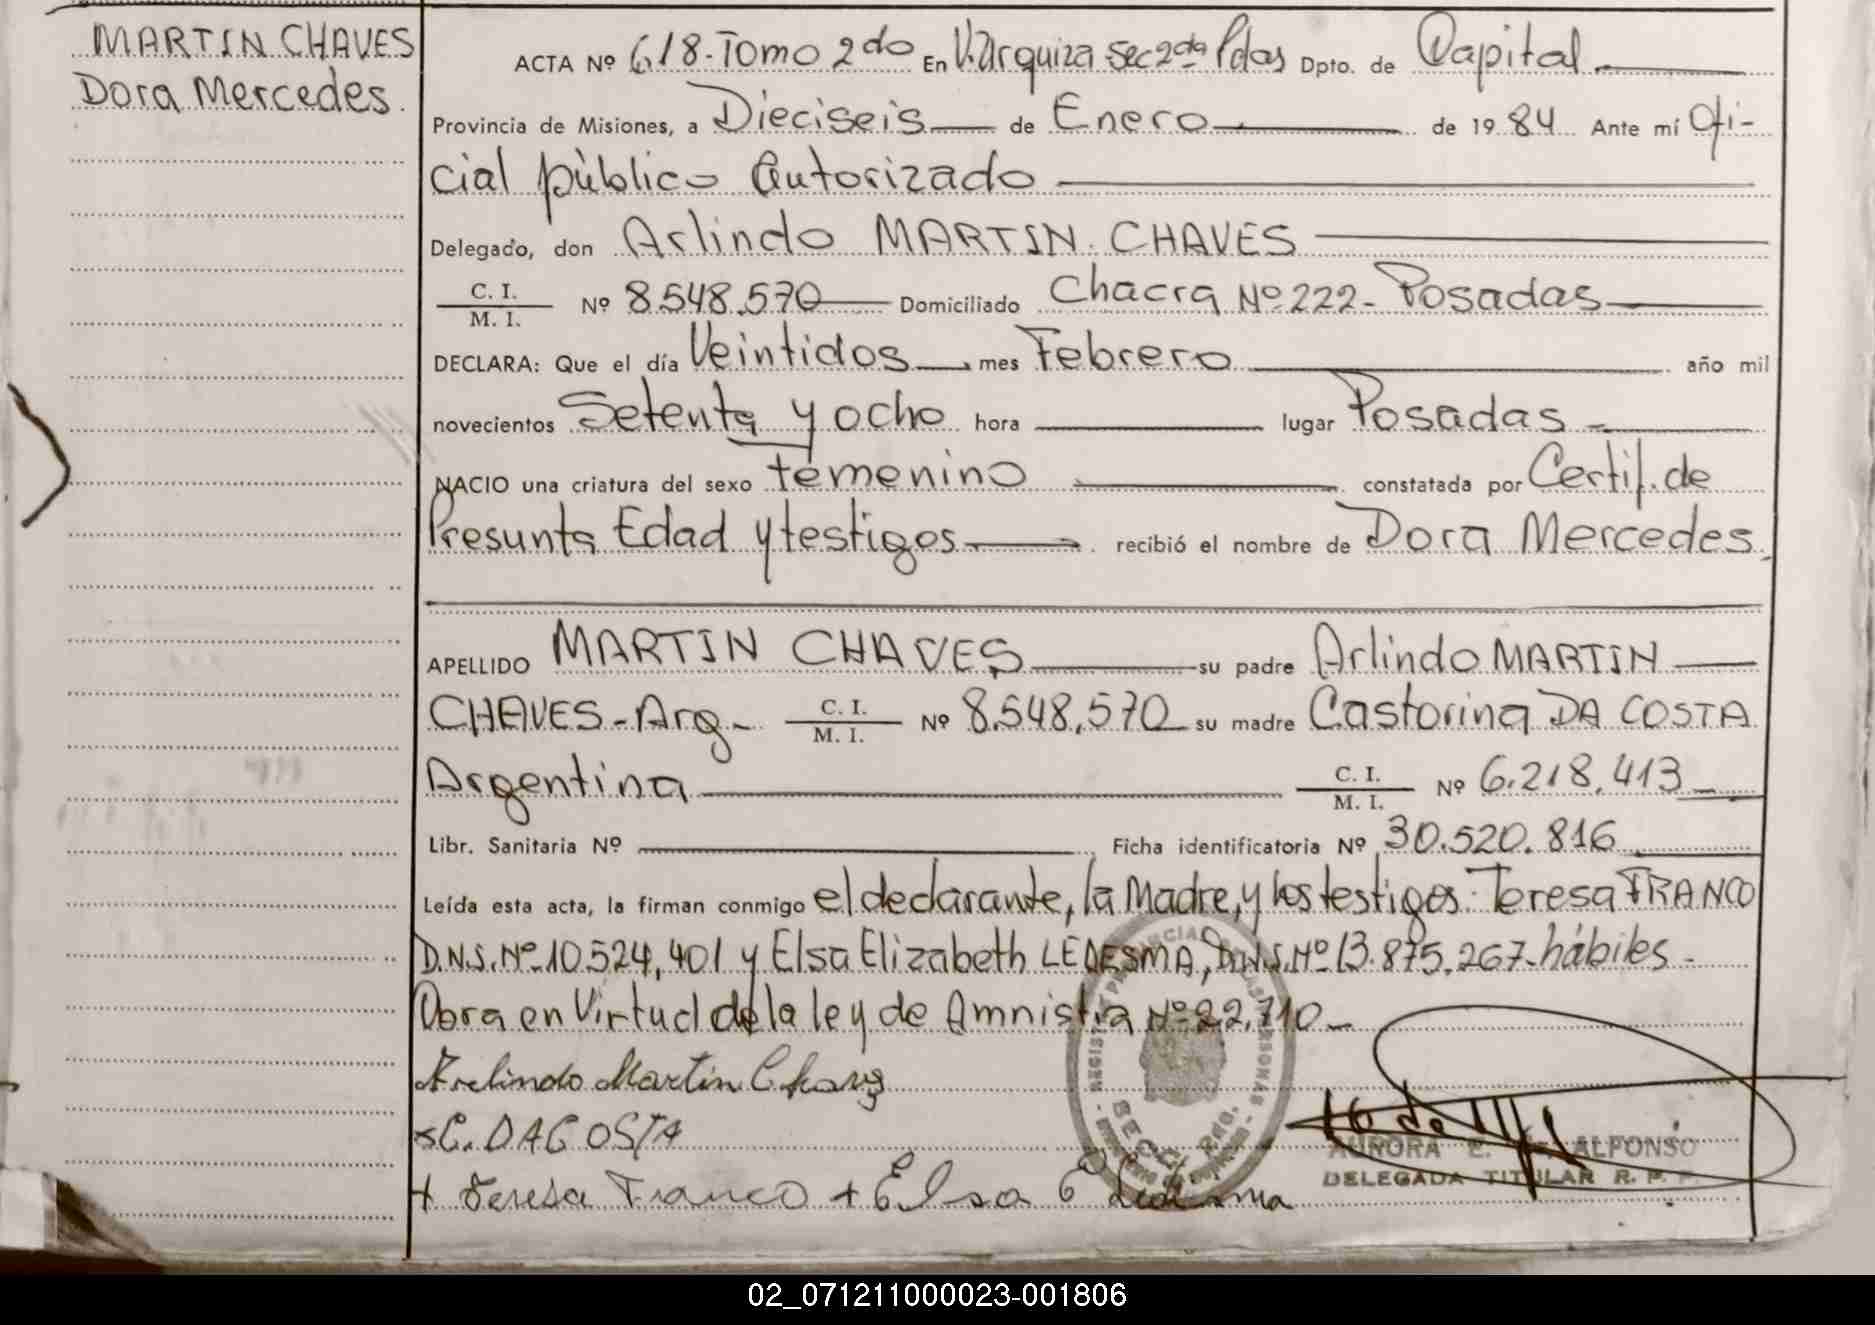 MARTIN CHAVES
Dora Mercedes.
ACTA Nº 618-Tomo 2do En V. Urquiza Sec 2da Pdas Dpto. de Capital.
Provincia de Misiones, a Dieciseis de Enero de 1984 Ante mí Ofi-
cial pùblico Autorizado
Delegado, don Arlindo MARTIN CHAVES
C. I.
M. I. Nº 8.548.570 Domiciliado Chacra Nº 222- Posadas
DECLARA: Que el día Veintidos mes Febrero año mil
novecientos Setenta y ocho hora lugar Posadas
NACIO una criatura del sexo femenino constatada por Certif. de
Presunta Edad y testigos recibió el nombre de Dora Mercedes.
APELLIDO MARTIN CHAVES su padre Arlindo MARTIN
CHAVES - Arg. C. I.
M. I. Nº 8.548.570 su madre Castorina DA COSTA
Argentina C. I.
M. I. Nº 6.218.413
Libr. Sanitaria Nº Ficha identificatoria Nº 30.520.816
Leída esta acta, la firman conmigo el declarante, la Madre, y los testigos: Teresa FRANCO
D.N.I. Nº 10.524.401 y Elsa Elizabeth LEDESMA, D.N.I. Nº 13.875.267-hábiles-
Obra en Virtud de la ley de Amnistia Nº 22.710-
Arelindo Martin Chavez
C. DACOSTA
+ Teresa Franco + Elsa E Ledesma
SECC. 2da.
AURORA E. ALFONSO
DELEGADA TITULAR R. P. P.
02_071211000023-001806